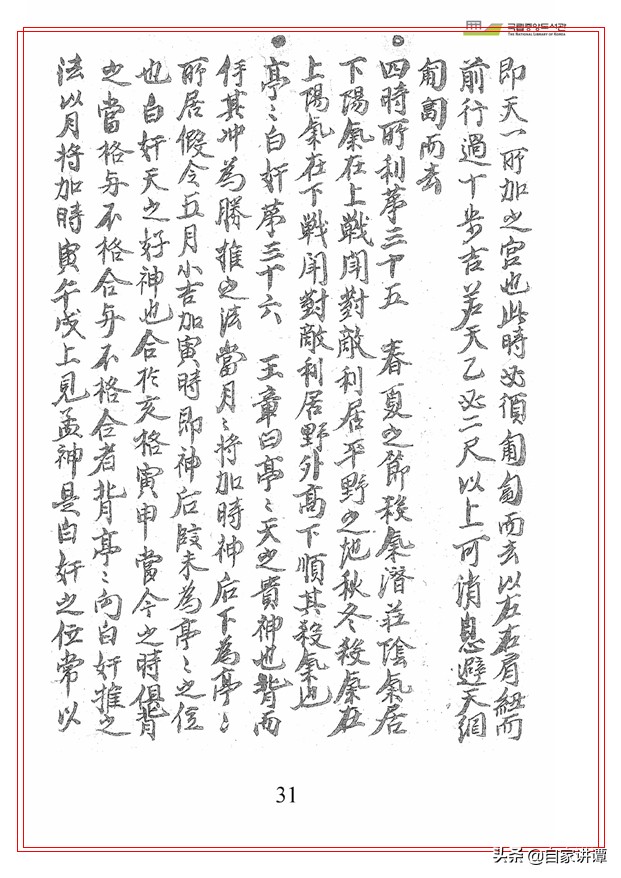 국립중앙도서관
THE NATIONAL LIBRARY OF KOREA
即天一所加之宮也此時必須匍匐而去以左右肩紐而
前行過十步吉若天乙必二尺以上可消息避天網
匍匐而去
四時所利第三十五 春夏之節殺氣潛莊陰氣居
下陽氣在上戰鬪對敵利居平野之地秋冬殺氣在
上陽氣在下戰鬪對敵利居野外高下順其殺氣也
亭〻白奸第三十六 王章曰亭〻天之貴神也背而
待其冲為勝推之法當月〻將加時神后下為亭〻
所居假令五月小吉加寅時即神后臨未為亭〻之位
也白奸天之奸神也合於亥格寅申當合之時俱背
之當格与不格合与不格合者背亭〻向白奸推之
法以月将加時寅午戌上見孟神是白奸之位常以
31
头条 @自家讲谭